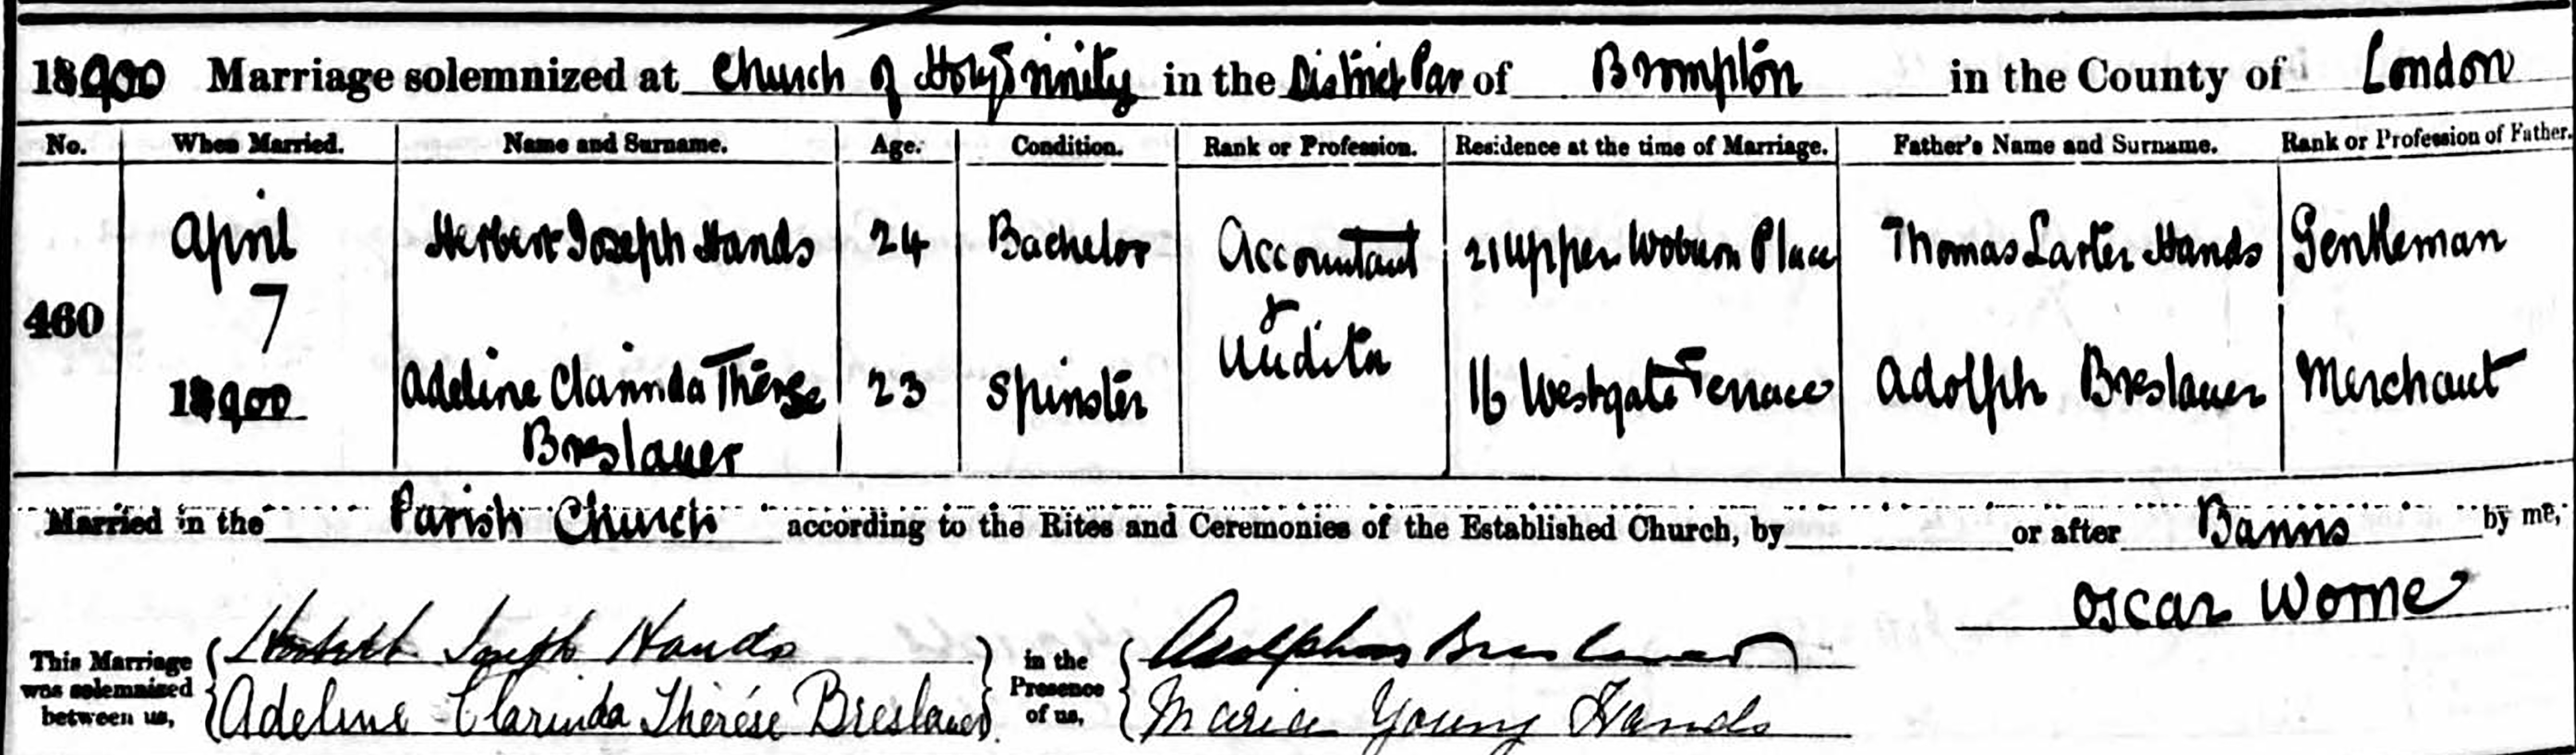 1900 Marriage solemnized at Church of Holy Trinity in the District Par of Brompton in the County of London
No. When Married. Name and Surname. Age. Condition. Rank or Profession. Residence at the time of Marriage. Father's Name and Surname. Rank or Profession of Father.
460
April 7 1900
Herbert Joseph Hands 24 Bachelor Accountant & Auditor 21 Upper Woburn Place Thomas Larter Hands Gentleman
Adeline Clarinda Thérèse Breslauer 23 Spinster 16 Westgate Terrace Adolph Breslauer Merchant
Married in the Parish Church according to the Rites and Ceremonies of the Established Church, by or after Banns by me,
Oscar Worne
This Marriage was solemnized between us,
Herbert Joseph Hands
Adeline Clarinda Thérése Breslauer
in the Presence of us,
Adolphus Breslauer
Maria Young Hands